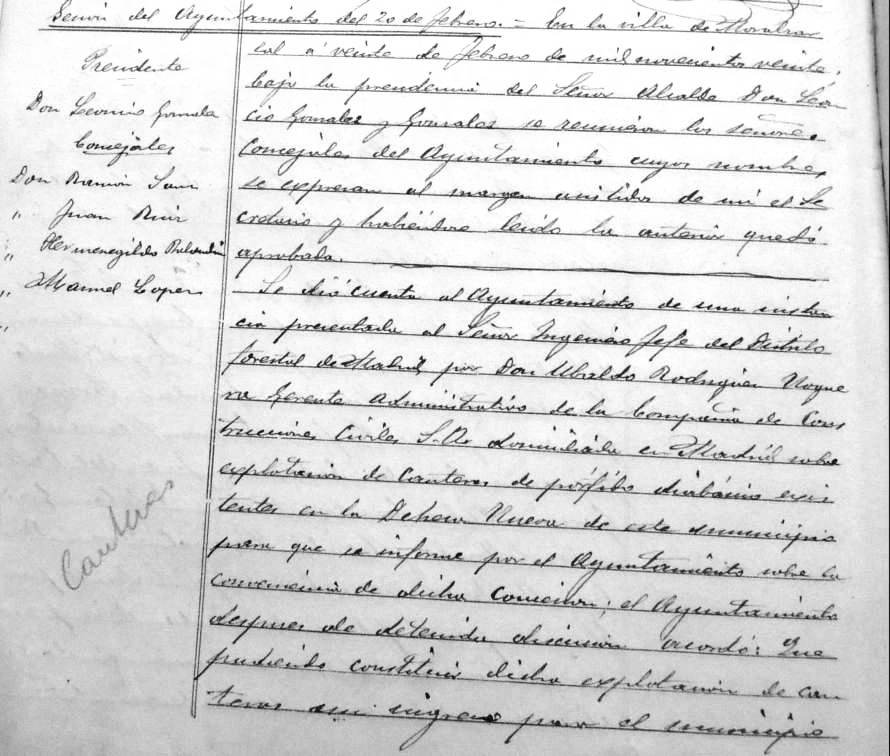 Sesión del Ayuntamiento del 20 de febrero. - En la villa de Moralzar
zal a veinte de febrero de mil novecientos veinte,
bajo la presidencia del Señor Alcalde Don Leon
cio Gonzalez y Gonzalez se reunieron los señores
Concejales del Ayuntamiento cuyos nombres
se expresan al margen asistidos de mi el Se
cretario y habiéndose leido la anterior quedó
aprobada.
Presidente
Don Leoncio Gonzalez
Concejales
Don Ramón Sanz
" Juan Ruiz
" Hermenegildo
" Manuel Lopez
"
Se dió cuenta al Ayuntamiento de una instan
cia presentada al Señor Ingeniero Jefe del Distrito
forestal de Madrid por Don Ubaldo Rodriguez Nogue
ra Gerente Administrativo de la Compañia de Cons
trucciones Civiles S.A. domiciliada en Madrid sobre
explotación de Canteras de pórfido diabásico exis
tentes en la Dehesa Nueva de este municipio
para que se informe por el Ayuntamiento sobre la
conveniencia de dicha concesion; el Ayuntamiento
despues de detenida discusion acordó: Que
pudiendo constituir dicha explotacion de can
teras un ingreso para el municipio
Canteras